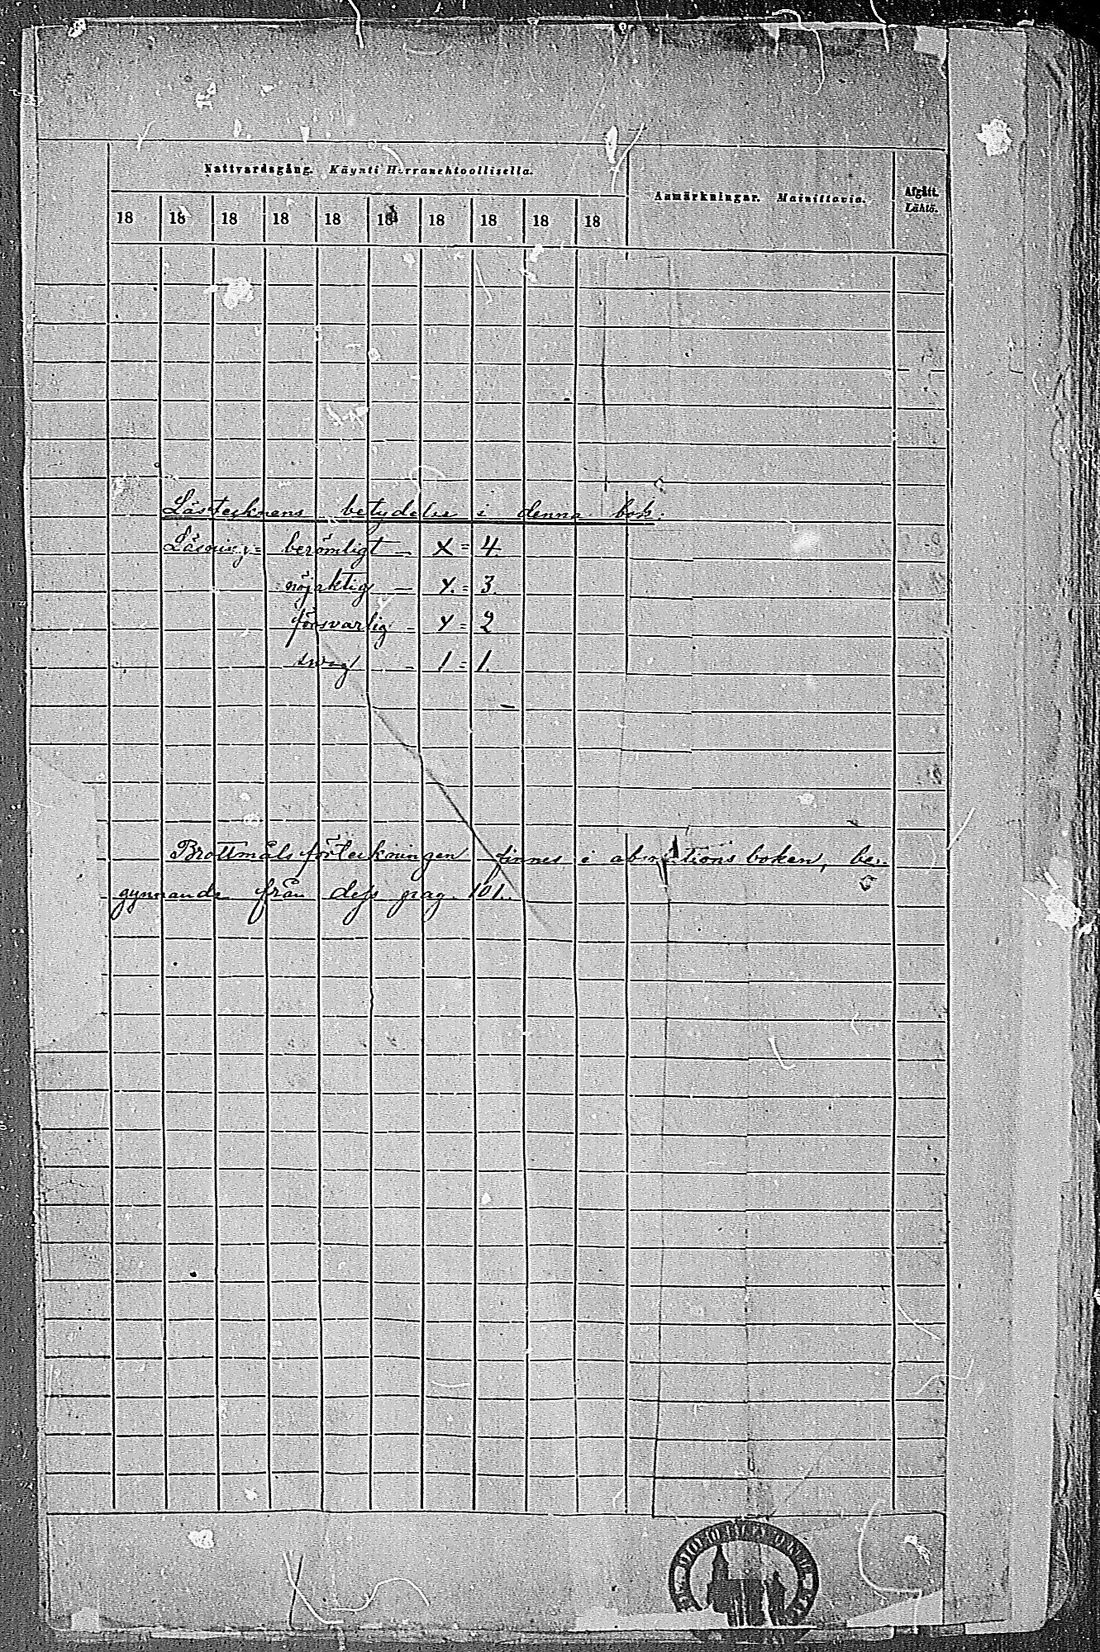 Nattvardsgång. Käynti Herranehtoollisella.
Anmärkningar. Mainittavia.
Afgått. Lähtö.
18 18 18 18 18 18 18 18 18 18
Lästecknens betydelse i denna bok:
Läsning: berömligt — X = 4
nöjaktig — Y. = 3.
försvarlig — Y = 2
svag — 1 = 1.
Brottmåls förteckningen finnes i absolutions boken, be-
gynnande från dess pag. 101.